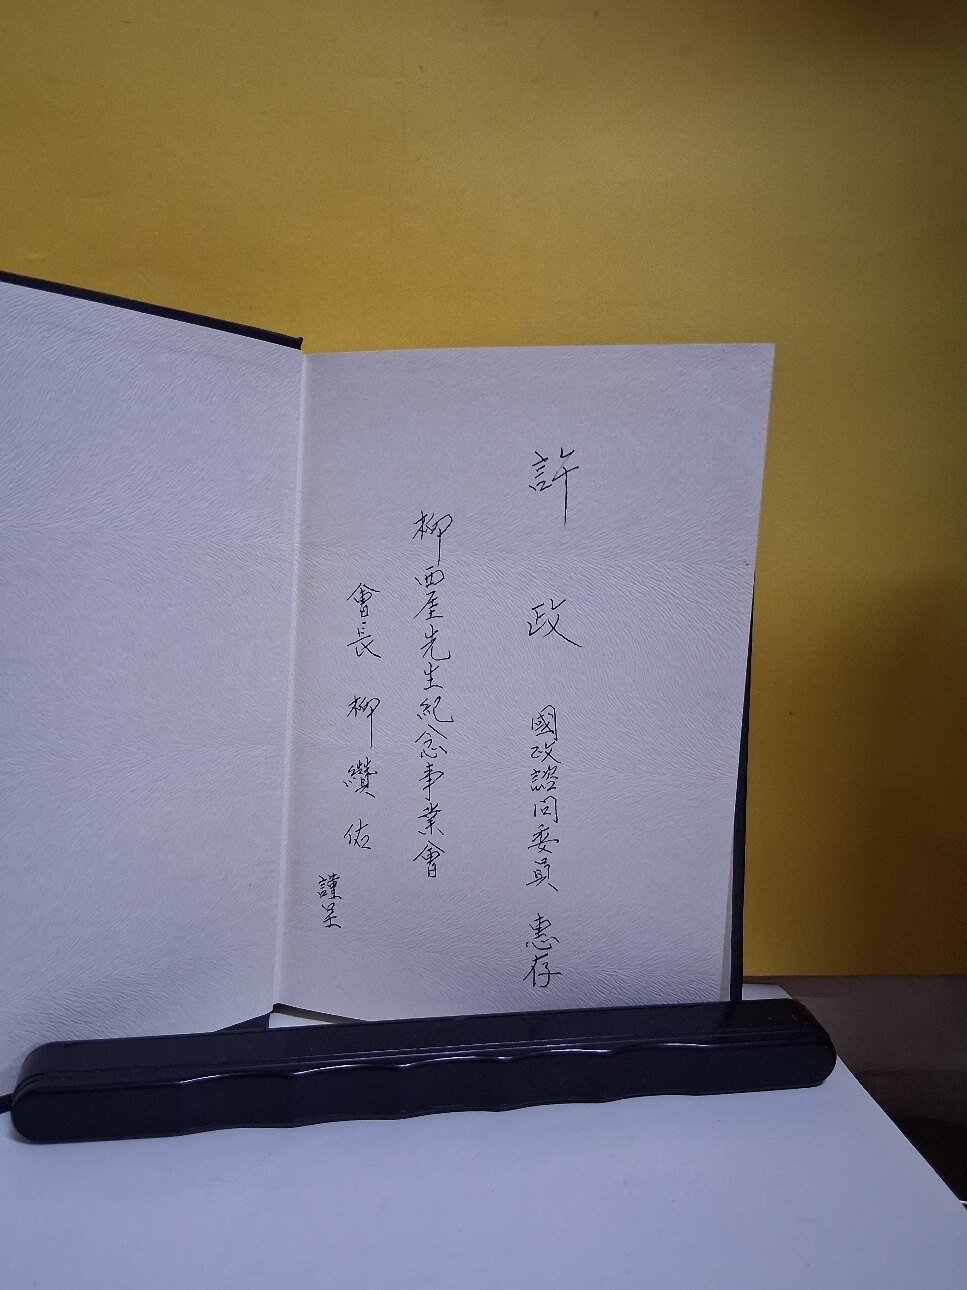 許 政 國政諮問委員 惠存
柳西厓先生紀念事業會
會長 柳纘佑
謹呈